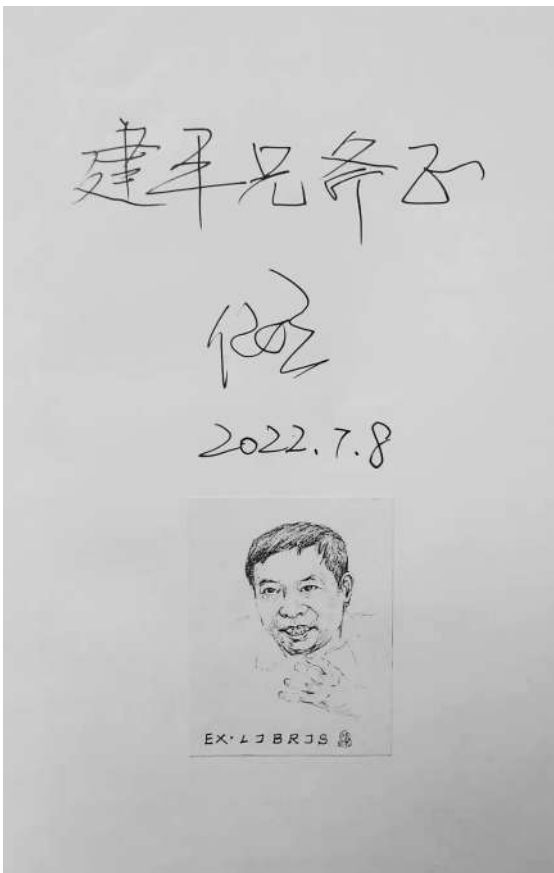 建平兄斧正
2022.7.8
EX·LIBRIS